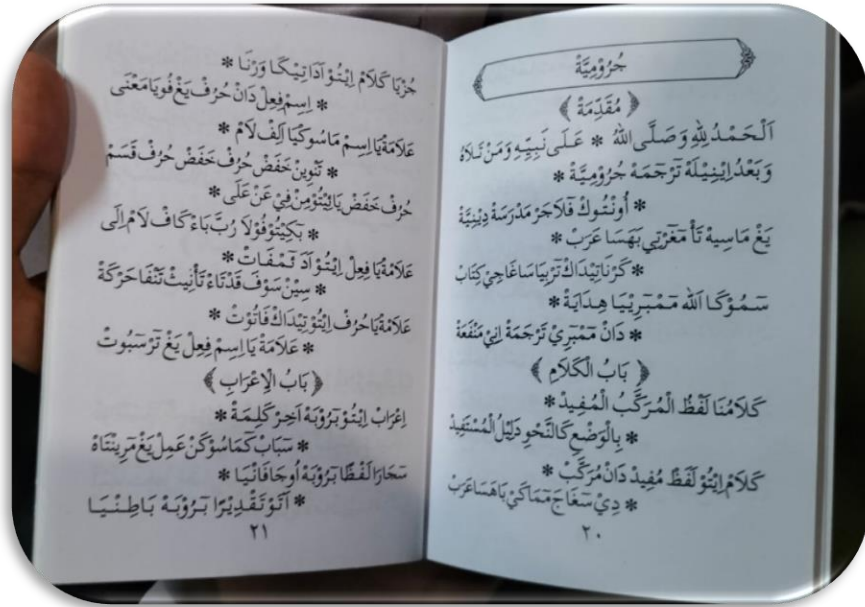 جُرُوْمِيَّةْ
﴿ مُقَدِّمَةْ ﴾
اَلْحَمْدُ لِلّٰهِ وَصَلَّى اللهُ * عَلَى نَبِيِّهِ وَمَنْ تَلَاهُ
وَبَعْدُ اِيْنِيْلَهْ تَرْجَمَهْ جُرُوْمِيَّةْ *
* أُونْتُوكْ فَلَاجَرْ مَدْرَسَهْ دِيْنِيَّةْ
يَغْ مَاسِيهْ تَأْ مَغَرْتِي بَهَسَا عَرَبْ *
* كَرْنَا تِيْدَاكْ تَرْبِيَاسَا غَاجِيْ كِتَابْ
سَمُوْكَا الله مَمْبَرِيْيَا هِدَايَةْ *
* دَانْ مَمْبَرِيْ تَرْجَمَةْ اِنِيْ مَنْفَعَةْ
﴿ بَابُ الْكَلَامِ ﴾
كَلَامُنَا لَفْظُ الْمُرَكَّبُ الْمُفِيدْ *
* بِالْوَضْعِ كَالنَّحْوِ دَلِيْلُ الْمُسْتَفِيدْ
كَلَامْ اِيْتُوْ لَفَظْ مُفِيدْ دَانْ مُرَكَّبْ *
* دِيْ سَغَاجَ مَمَاكَيْ بَاهَسَا عَرَبْ
٢٠
جُزْيَا كَلَامْ اِيْتُوْ اَدَا تِيْكَا وَرْنَا *
* اِسِمْ فِعِلْ دَانْ حُرُفْ يَغْ فُوْيَا مَعْنَى
عَلَامَةْ يَا اِسِمْ مَاسُوكْيَا اَلِفْ لَامْ *
* تَنْوِينْ خَفَضْ حُرُفْ خَفَضْ حُرُفْ قَسَمْ
حُرُفْ خَفَضْ يَائِيْتُوْ مِنْ فِيْ عَنْ عَلَى *
* بَكِيْتُوْ فُوْلَا رُبَّ بَاءْ كَافْ لَامْ اِلَى
عَلَامَةْ يَا فِعِلْ اِيْتُوْ اَدَ تَمْفَاتْ *
* سِيْنْ سَوْفَ قَدْ تَاءْ تَأْنِيثْ تَنْفَا حَرَكَةْ
عَلَامَةْ يَا حُرُفْ اِيْتُوْ تِيْدَاكْ فَاتُوْتْ *
* عَلَامَةْ يَا اِسِمْ فِعِلْ يَغْ تَرْسَبُوتْ
﴿ بَابُ الْاِعْرَابِ ﴾
اِعْرَابْ اِيْتُوْ بَرُوْبَهْ اَخِرْ كَلِمَةْ *
* سَبَابْ كَمَاسُوْكَنْ عَمِلْ يَغْ مَرِيْنْتَاهْ
سَحَارَا لَفْظًا بَرُوْبَهْ اُوجَافَانْيَا *
* اَتَوْ تَقْدِيْرًا بَرُوْبَهْ بَاطِنْيَا
٢١